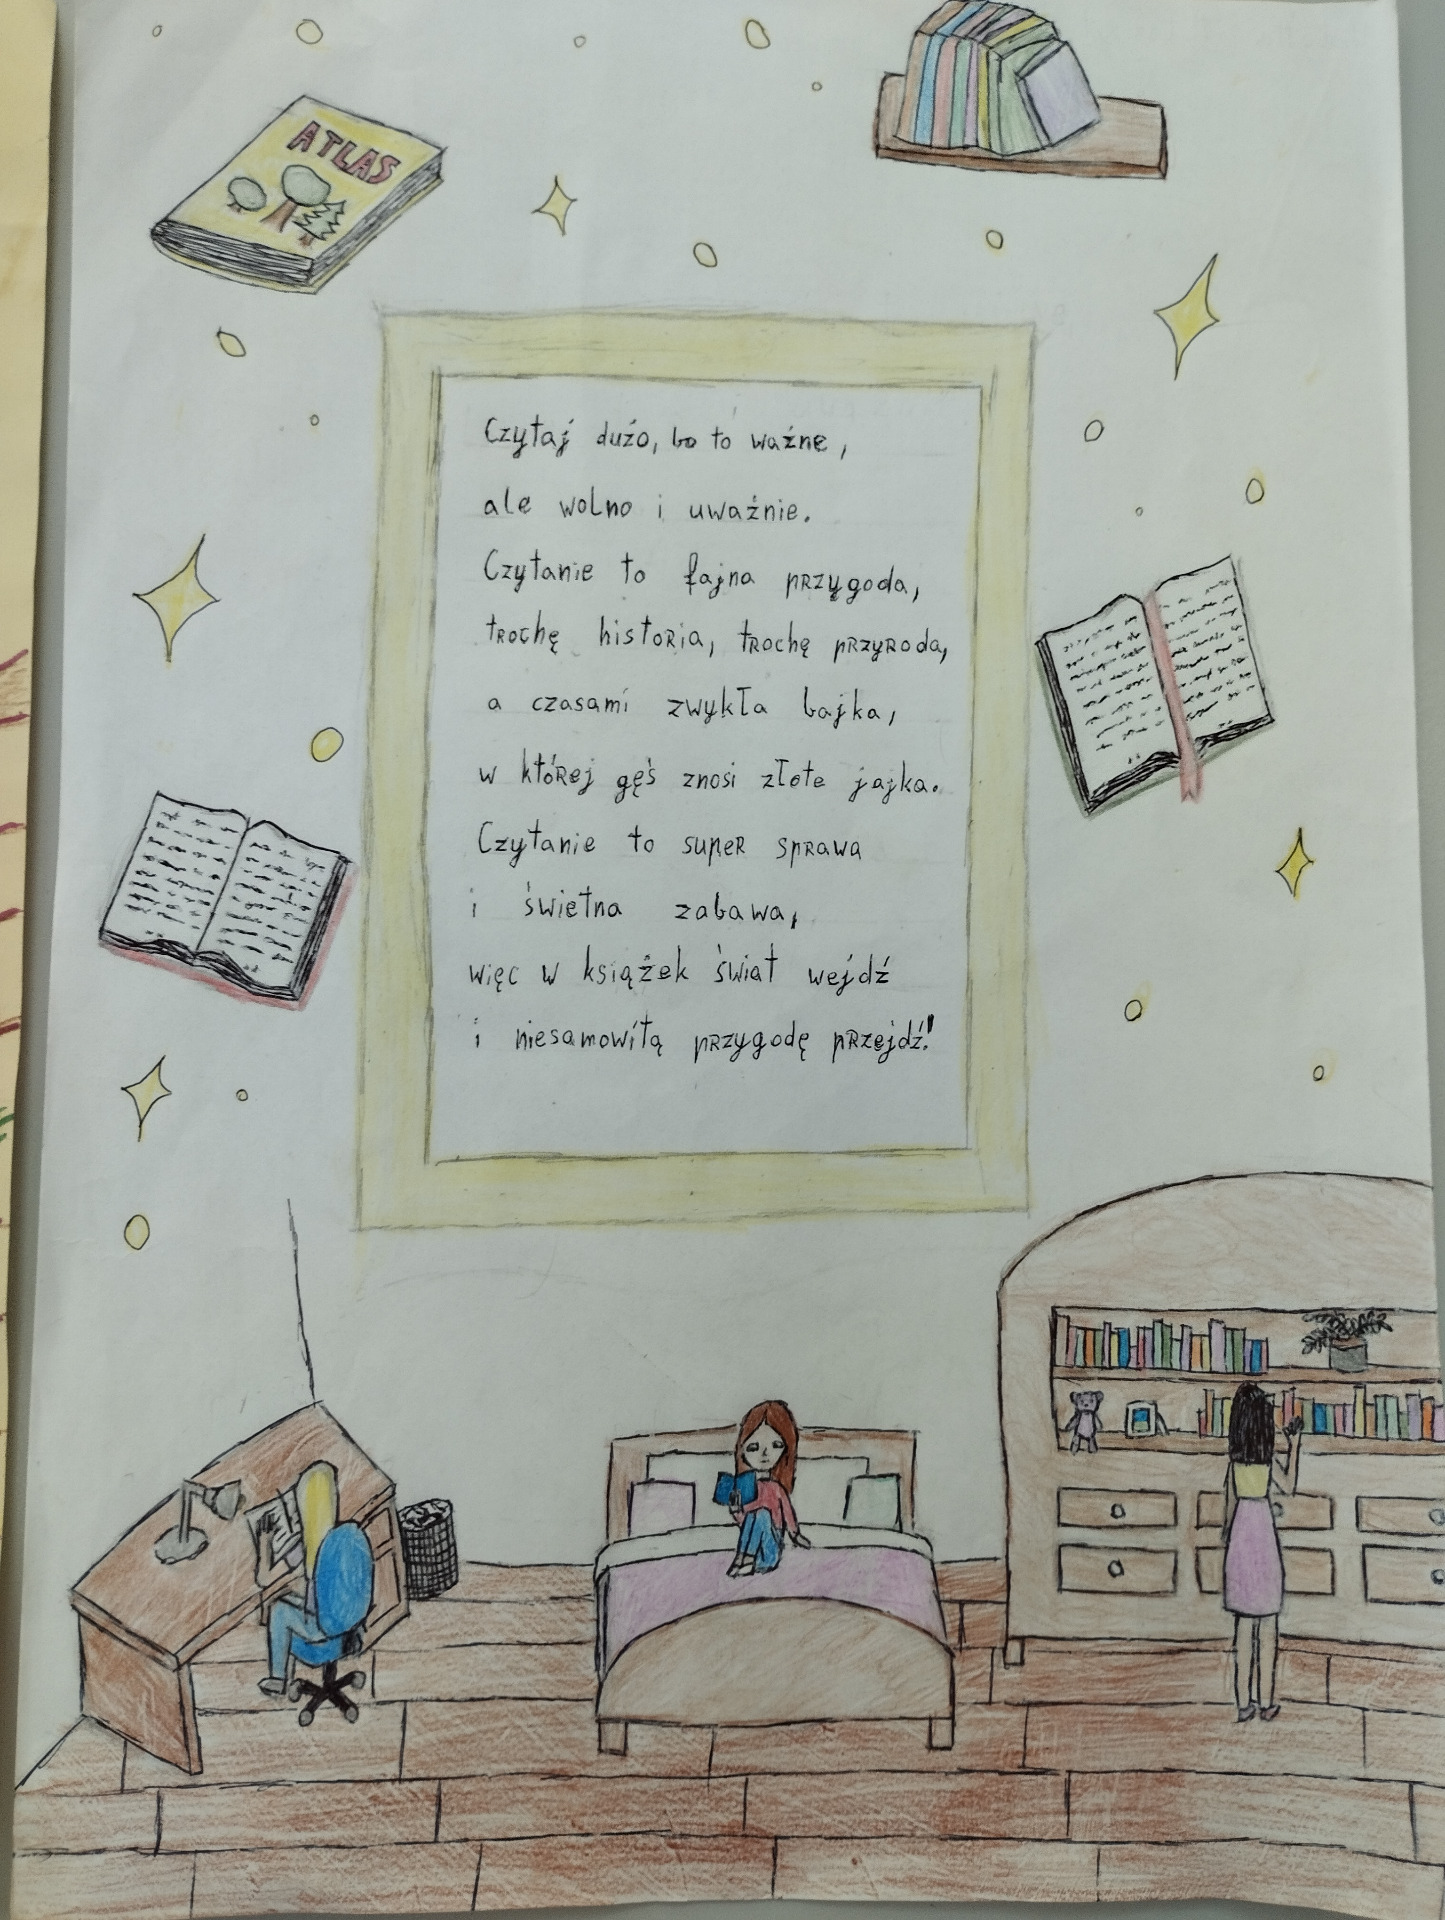 ATLAS
Czytaj dużo, bo to ważne,
ale wolno i uważnie.
Czytanie to fajna przygoda,
trochę historia, trochę przyroda,
a czasami zwykła bajka,
w której gęś znosi złote jajka.
Czytanie to super sprawa
i świetna zabawa,
więc w książek świat wejdź
i niesamowitą przygodę przejdź!